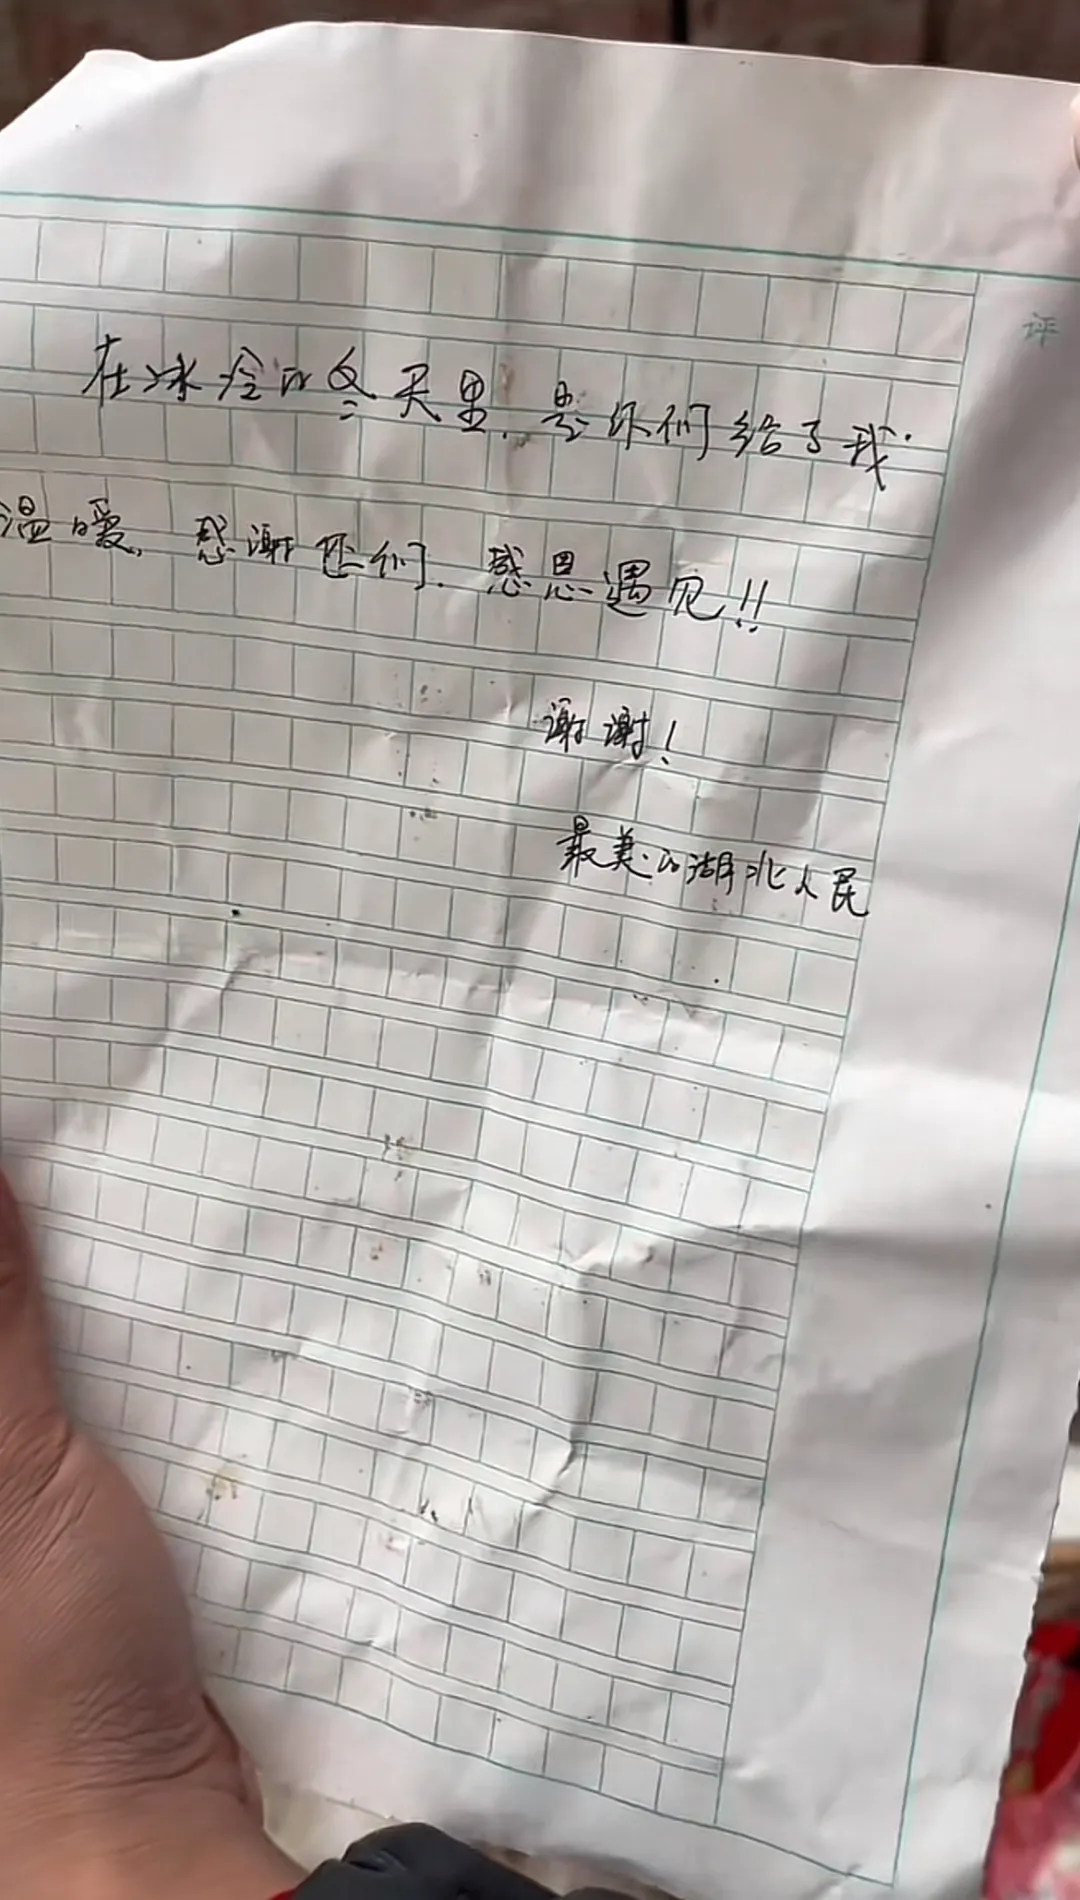 在冰冷的冬天里，是你们给了我
温暖，感谢您们，感恩遇见!!
谢谢!
最美的湖北人民
评